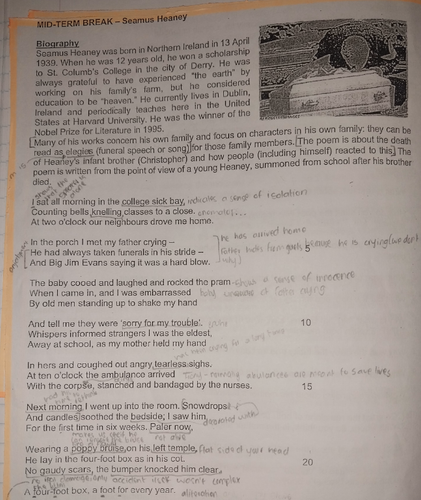 MID-TERM BREAK – Seamus Heaney
Biography
Seamus Heaney was born in Northern Ireland in 13 April
1939. When he was 12 years old, he won a scholarship
to St. Columb's College in the city of Derry. He was
always grateful to have experienced "the earth" by
working on his family's farm, but he considered
education to be "heaven." He currently lives in Dublin,
Ireland and periodically teaches here in the United
States at Harvard University. He was the winner of the
Nobel Prize for Literature in 1995.
Many of his works concern his own family and focus on characters in his own family: they can be
read as elegies (funeral speech or song) for those family members. The poem is about the death
of Heaney's infant brother (Christopher) and how people (including himself) reacted to this. The
poem is written from the point of view of a young Heaney, summoned from school after his brother
died.
I sat all morning in the college sick bay, indicates a sense of isolation
Counting bells knelling classes to a close.
At two o'clock our neighbours drove me home.
he has arrived home
In the porch I met my father crying – 5
He had always taken funerals in his stride – because he is crying
And Big Jim Evans saying it was a hard blow.
The baby cooed and laughed and rocked the pram a sense of innocence
When I came in, and I was embarrassed
By old men standing up to shake my hand
And tell me they were 'sorry for my trouble'. 10
Whispers informed strangers I was the eldest,
Away at school, as my mother held my hand
In hers and coughed out angry tearless sighs.
At ten o'clock the ambulance arrived ambulances are meant to save lives
With the corpse, stanched and bandaged by the nurses. 15
Next morning I went up into the room. Snowdrops
And candles soothed the bedside; I saw him
For the first time in six weeks. Paler now,
Wearing a poppy bruise on his left temple,
He lay in the four-foot box as in his cot. 20
No gaudy scars, the bumper knocked him clear.
A four-foot box, a foot for every year. alliteration